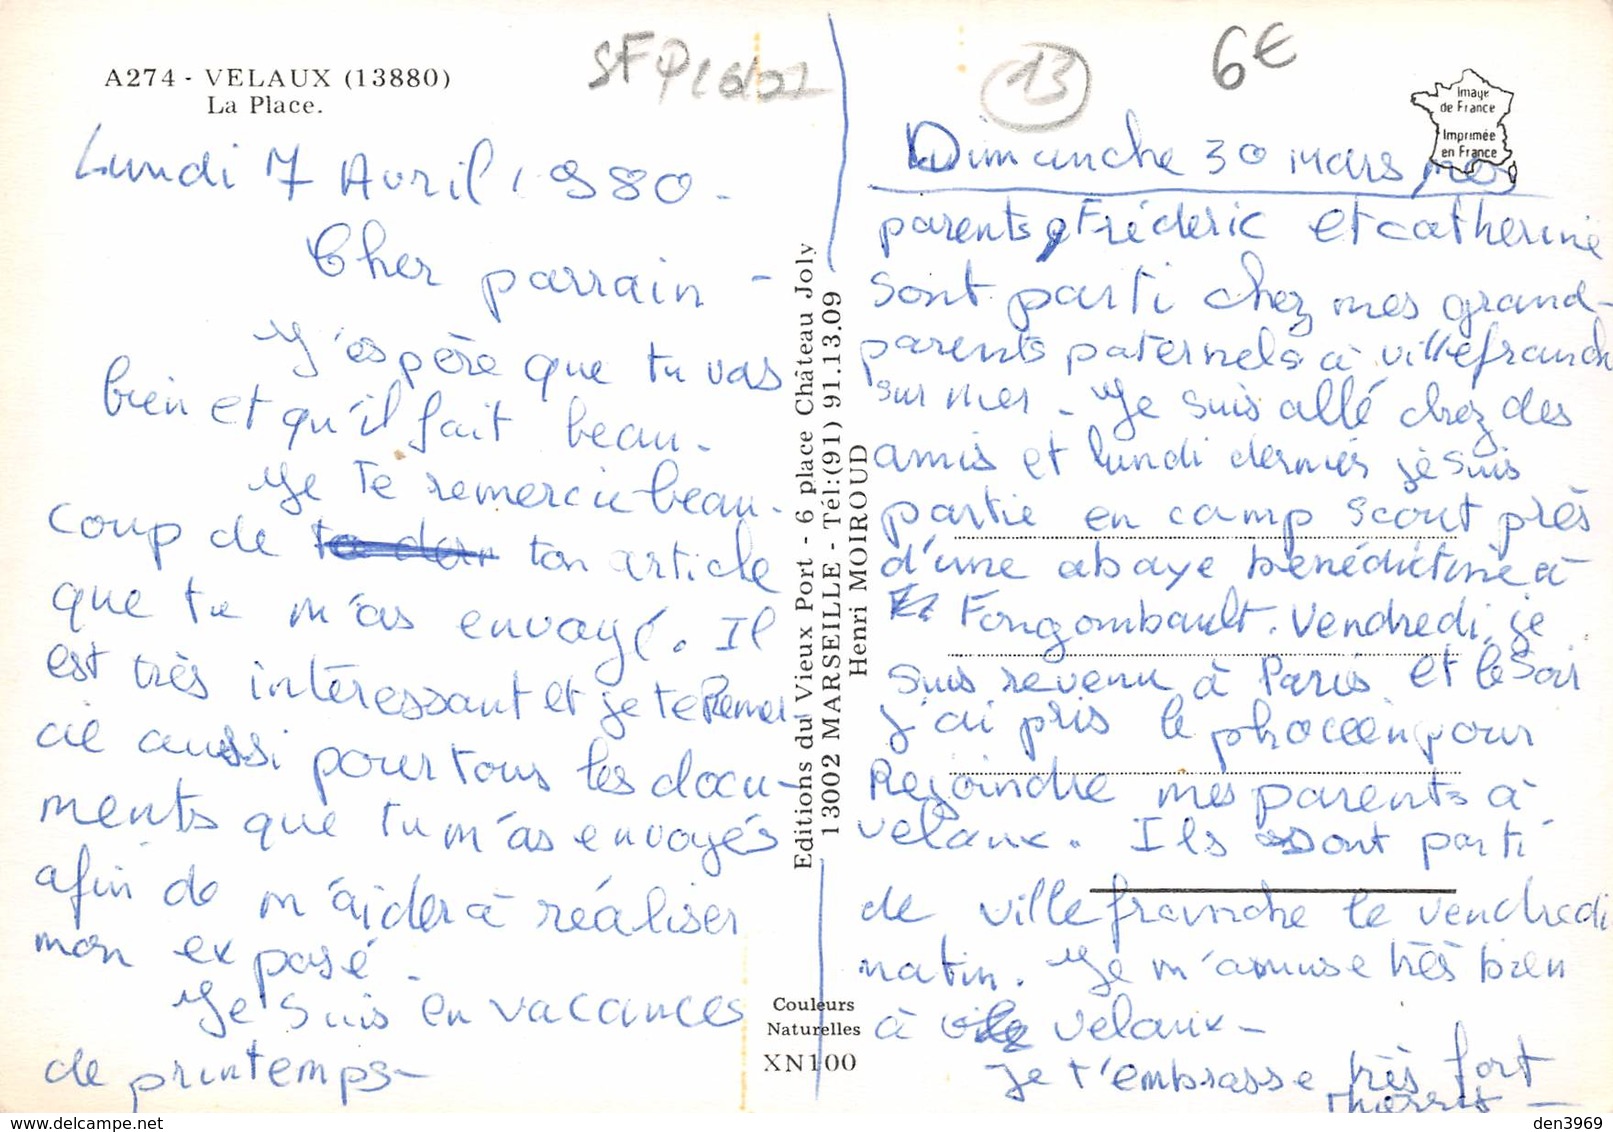 A274 - VELAUX (13880)
La Place.
Lundi 7 Avril 1980 -
Cher parrain -
J'espère que tu vas
bien et qu'il fait beau.
Je te remercie beau-
coup de ton article
que tu m'as envoyé. Il
est très intéressant et je te Remer
cie aussi pour tous les docu-
ments que tu m'as envoyés
afin de m'aider à réaliser
mon exposé.
Je suis en vacances
de printemps -
Editions du Vieux Port - 6 place Château Joly
13002 MARSEILLE - Tél:(91) 91.13.09
Henri MOIROUD
Couleurs
Naturelles
XN100
13
6€
Image
de France
Imprimée
en France
Dimanche 30 mars, mes
parents, Frédéric et catherine
sont parti chez mes grand-
parents paternels à villefranche
sur mer - Je suis allé chez des
amis et lundi dernier je suis
partie en camp scout près
d'une abaye bénédictine à
Fongombault. Vendredi, je
suis revenu à Paris et le soir
j'ai pris le phocéen pour
Rejoindre mes parents à
velaux. Ils sont parti
de villefranche le vendredi
matin. Je m'amuse très bien
à velaux -
Je t'embrasse très fort
den3969